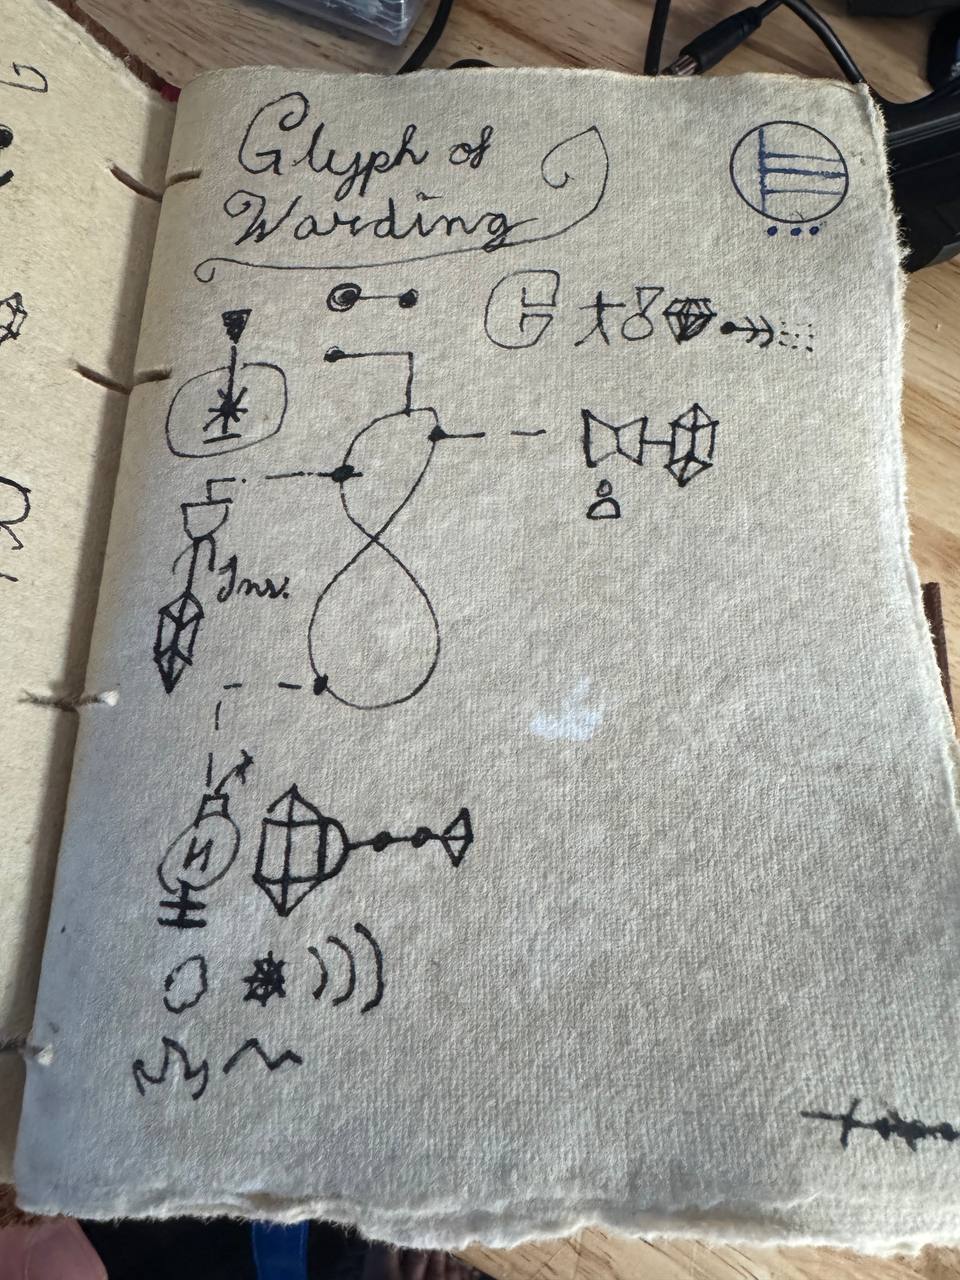 Glyph of
Warding
Inv.
H